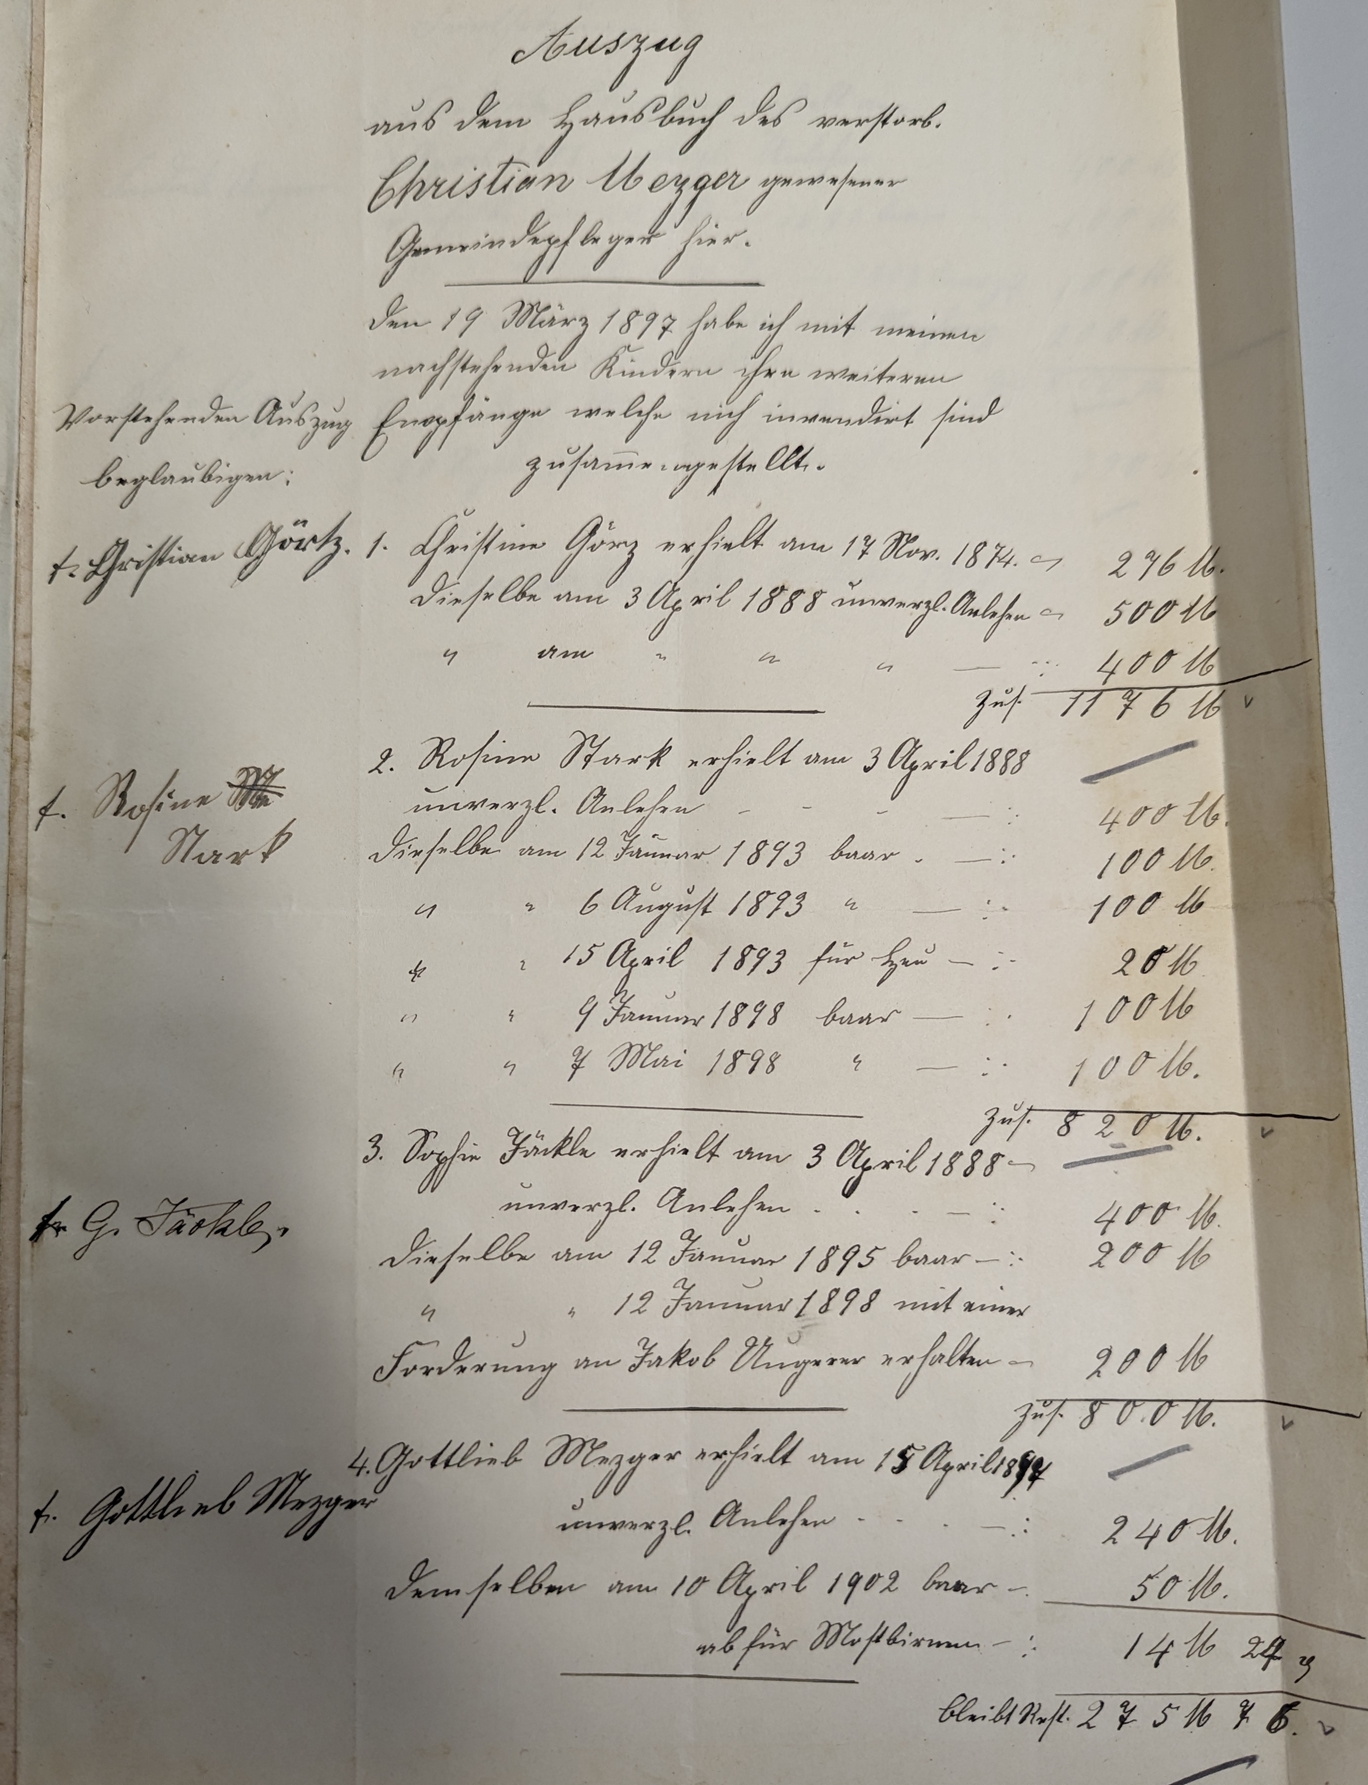 Auszug
aus dem Hausbuch des verstorb.
Christian Mezger gewesener
Gemeindepfleger hier.
Den 19 März 1897 habe ich mit meinen
nachstehenden Kindern ihre weiteren
Empfänge welche nich invendirt sind
zusammengestellt.
Vorstehenden Auszug
beglaubigen:
t. Christian Görtz.
1. Christine Görz erhielt am 17 Nov. 1874. 276 M.
Dieselbe am 3 April 1888 unverzl. Anlehen 500 M
" am " " " — : 400 M
Zus. 1176 M
t. Rosine
Stark
2. Rosine Stark erhielt am 3 April 1888
unverzl. Anlehen - - - — : 400 M.
Dieselbe am 12 Januar 1893 baar . — : 100 M.
" " 6 August 1893 " — : 100 M
" " 15 April 1893 für Heu — : 20 M
" " 9 Januar 1898 baar — : 100 M
" " 7 Mai 1898 " — : 100 M.
Zus. 820 M.
3. Sophie Jäckle erhielt am 3 April 1888
unverzl. Anlehen . . . — : 400 M.
t. G. Jäckle.
Dieselbe am 12 Januar 1895 baar — : 200 M
" " 12 Januar 1898 mit einer
Forderung an Jakob Ungerer erhalten 200 M
Zus. 800 M.
4. Gottlieb Mezger erhielt am 15 April 1897
t. Gottlieb Mezger
unverzl. Anlehen - - . — : 240 M.
Demselben am 10 April 1902 baar — . 50 M.
ab für Mostbirnen — : 14 M 24 ₰
bleibt Rest. 275 M 76.